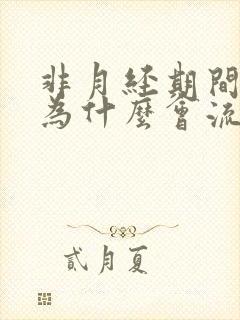 非月经期間
為什麼會流
貳月夏